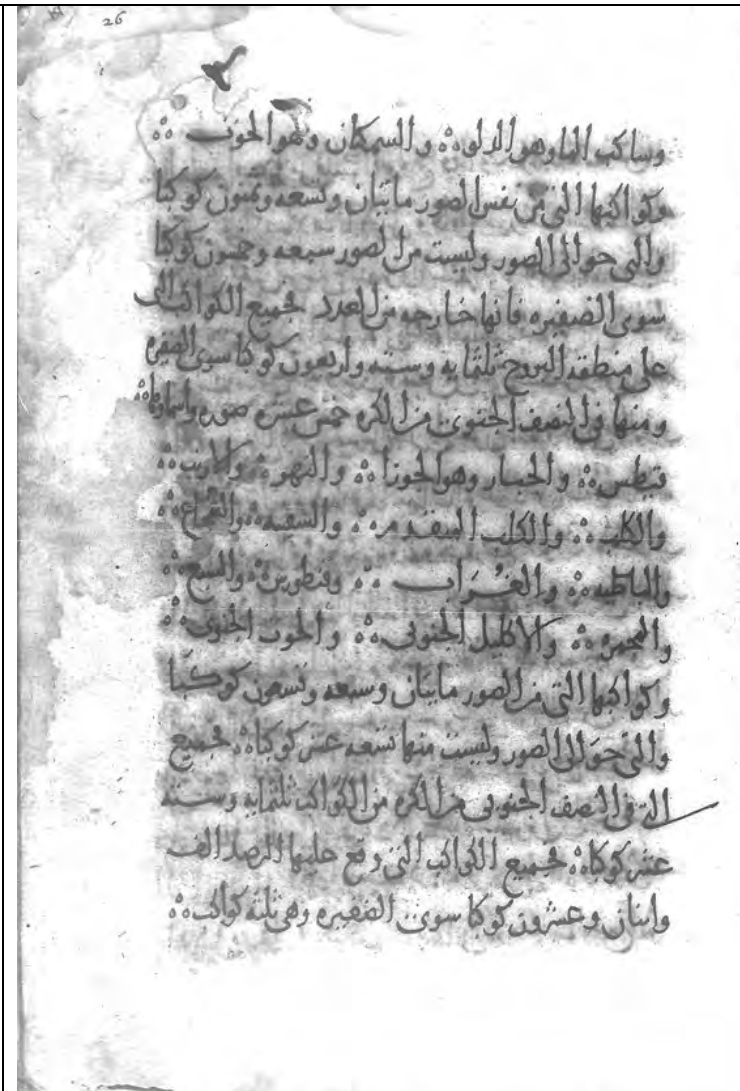 26
وساكب الما وهو الدلو ؞ والسمكتان وهو الحوت ؞
وكواكبها التى من نفس الصور مايتان وتسعه وثمنون كوكبا
والتى حوالى الصور وليست من الصور سبعه وخمسون كوكبا
سوى الضفيره فانها خارجه من العدد فجميع الكواكب التى
على منطقه البروج ثلثمايه وسته واربعون كوكبا سوى الضفيره
ومنها فى النصف الجنوبى من الكره خمس عشره صوره واسماوها ؞
قيطس ؞ والجبار وهو الجوزا ؞ والنهر ؞ والارنب ؞
والكلب ؞ والكلب المتقدم ؞ والسفينه ؞ والشجاع ؞
والباطيه ؞ والغُراب ؞ وقنطورس ؞ والسبع ؞
والمجمره ؞ والاكليل الجنوبى ؞ والحوت الجنوبى ؞
وكواكبها التى من الصور مايتان وسبعه وتسعون كوكبا
والتى حوالى الصور وليست منها تسعه عشر كوكبا ؞ فجميع
التى فى النصف الجنوبى من الكره من الكواكب ثلثمايه وسته
عشر كوكبا ؞ فجميع الكواكب التى وقع عليها الرصد الف
واثنان وعشرون كوكبا سوى الضفيره وهى ثلثه كواكب ؞